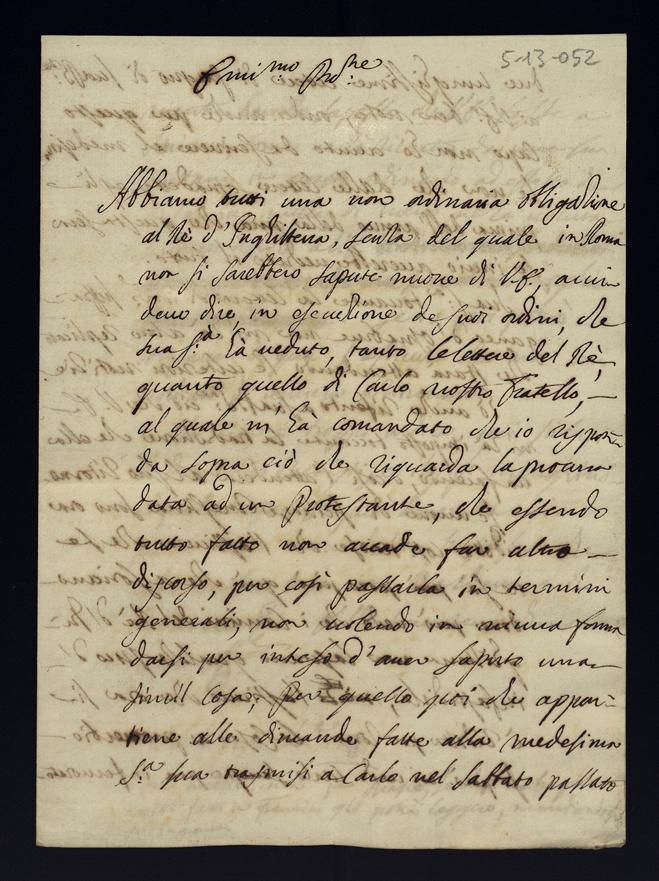 5-13-052
Emi.mo Pro.ne
Abbiamo tutti una non ordinaria obligatione
al Rè d'Inghilterra, senza del quale in Roma
non si sarebbero sapute nuove di V.E.,
devo dire, in esecutione de suoi ordini, che
sua S.tà hà veduto, tanto le lettere del Rè,
quanto quello di Carlo nostro fratello,
al quale m'hà comandato che io rispon-
da sopra ciò che riguarda la procura
data ad un Protestante, che essendo
tutto fatto non accade far altro
discorso, per così passarla in termini
generali, non volendo in niuna forma
darsi per inteso d'aver saputo una
simil cosa; Per quello poi che appar-
tiene alle dimande fatte alla medesima
S.tà sua trasmisi a Carlo nel Sabbato passato